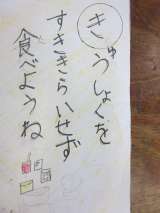 きゅうしょくを
すききらいせず
食べようね